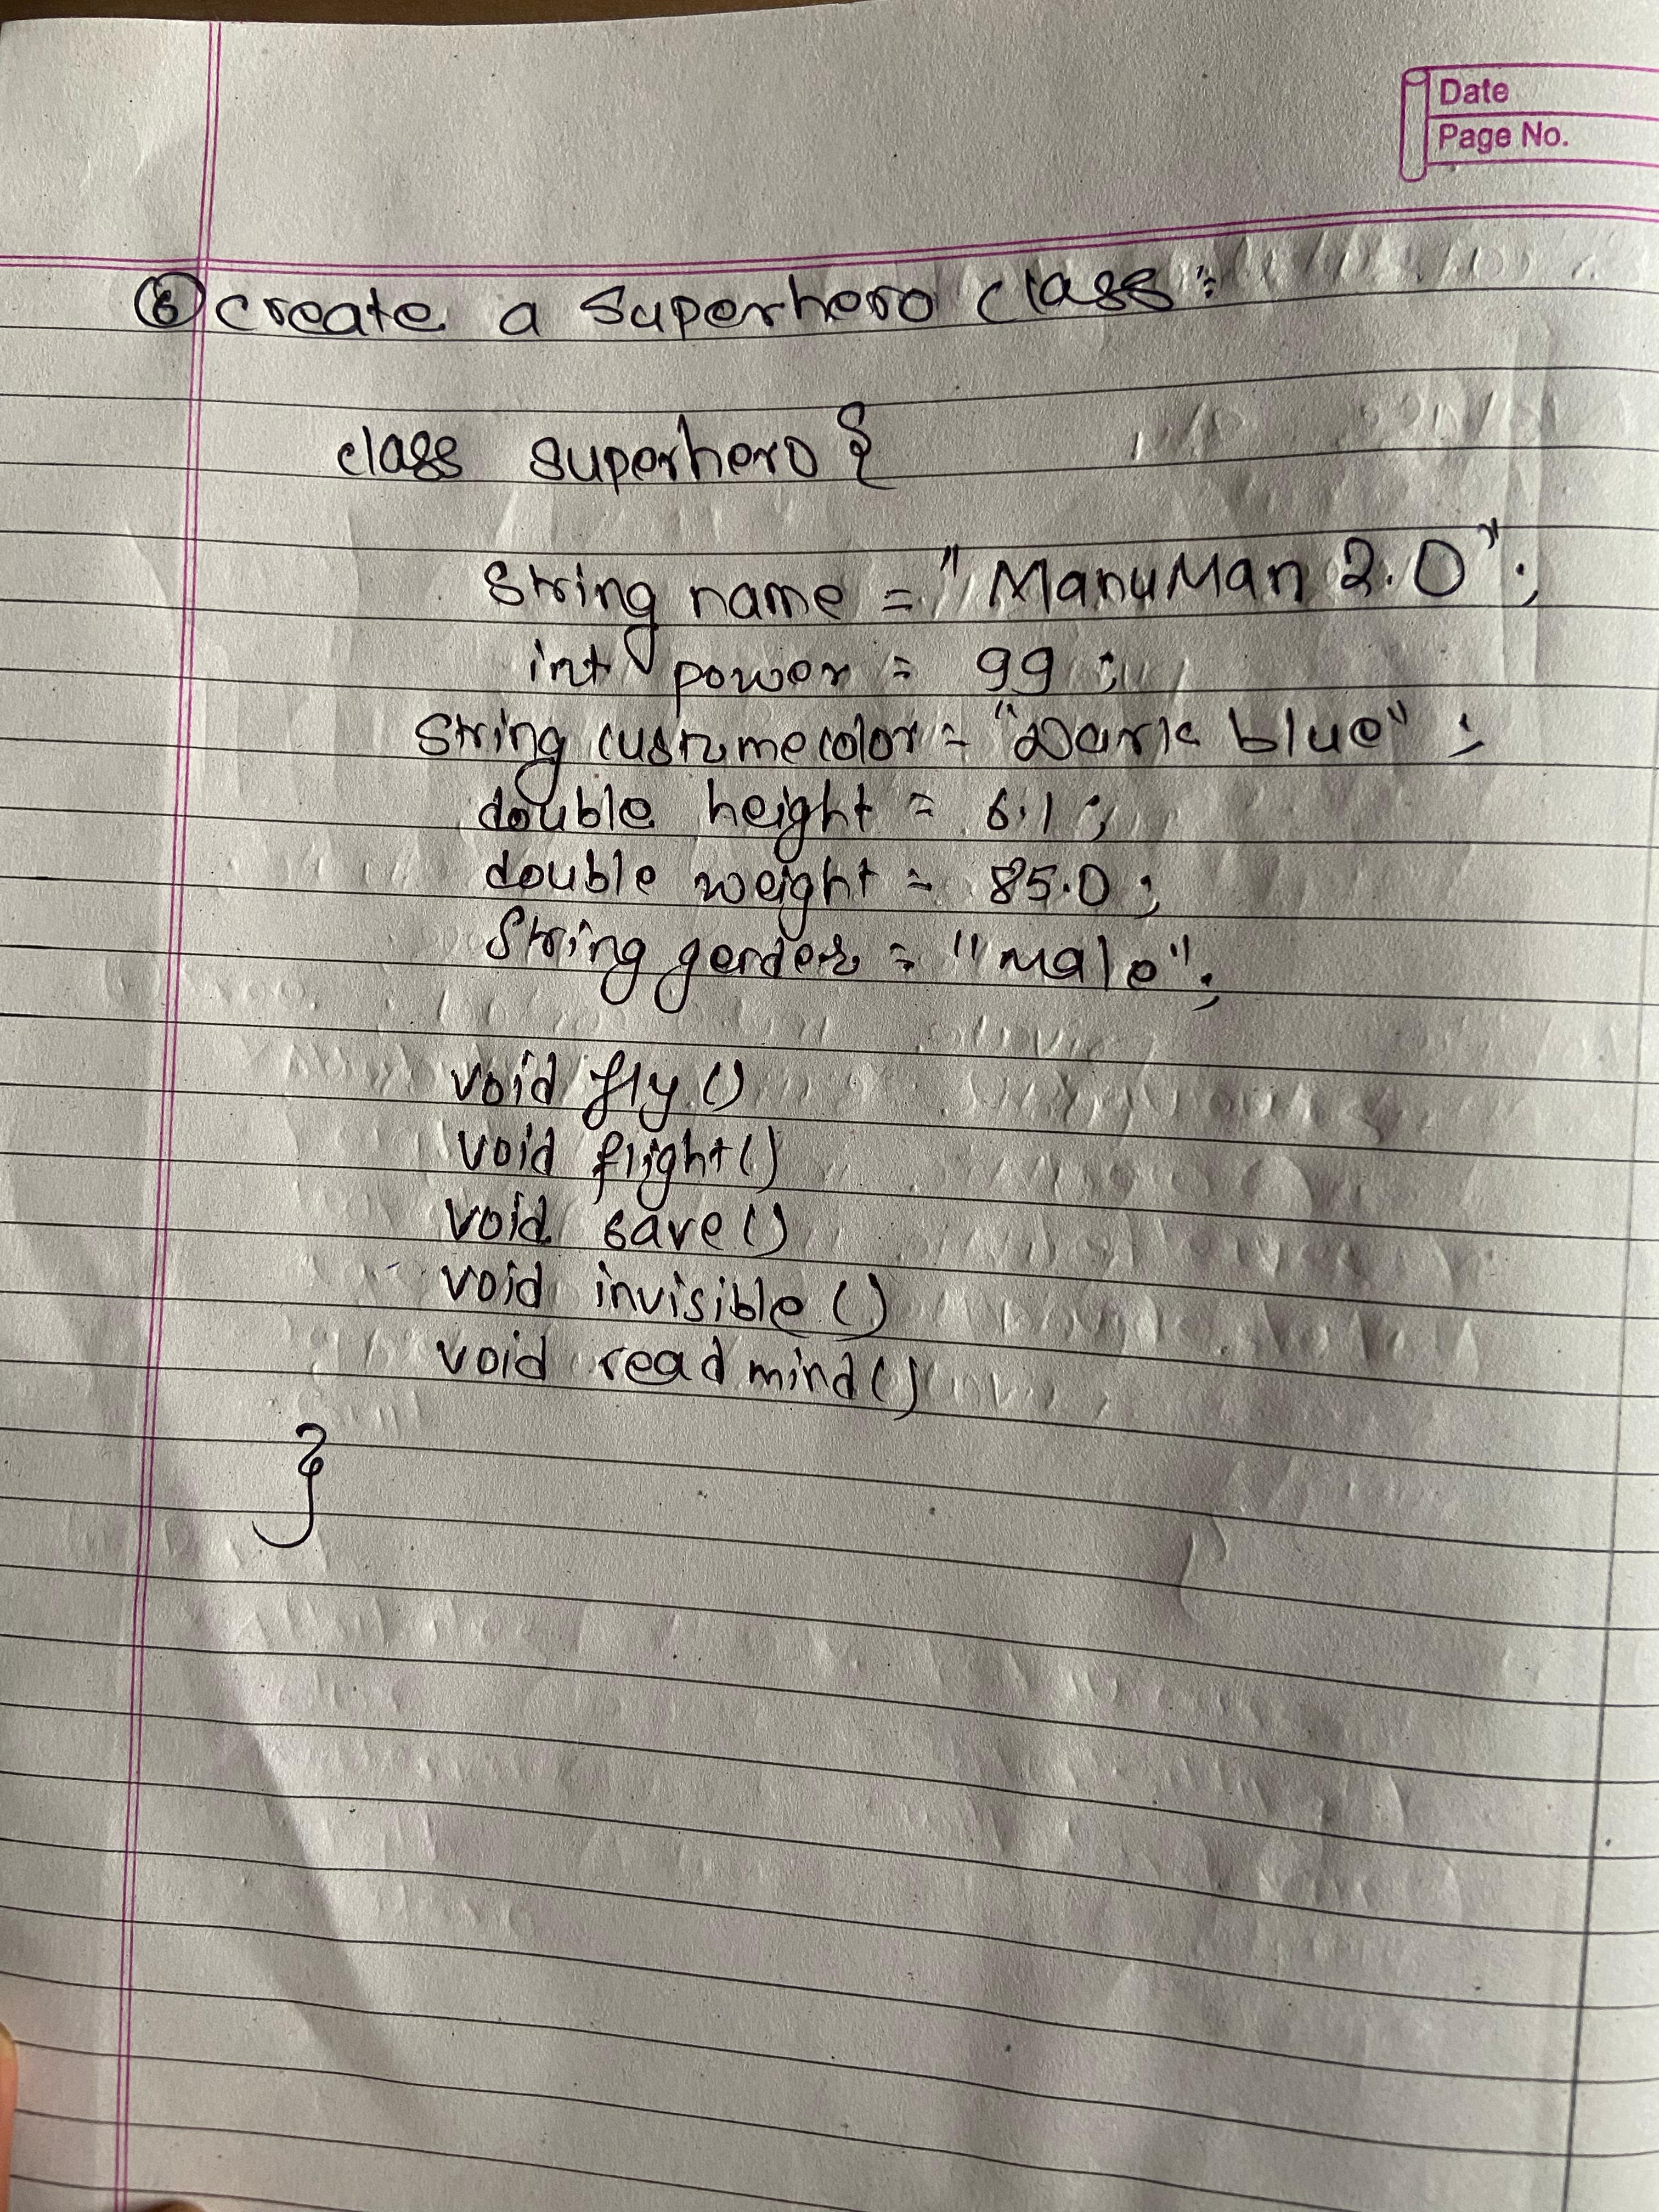 Date
Page No.
⑥ create a superhero class :
class superhero {
String name = "ManuMan 2.0";
int power = 99 ;
String custumecolor = "Dark blue" ;
double height = 6.1 ;
double weight = 85.0 ;
String gender = "Male";
void fly()
void flight()
void save()
void invisible()
void read mind()
}